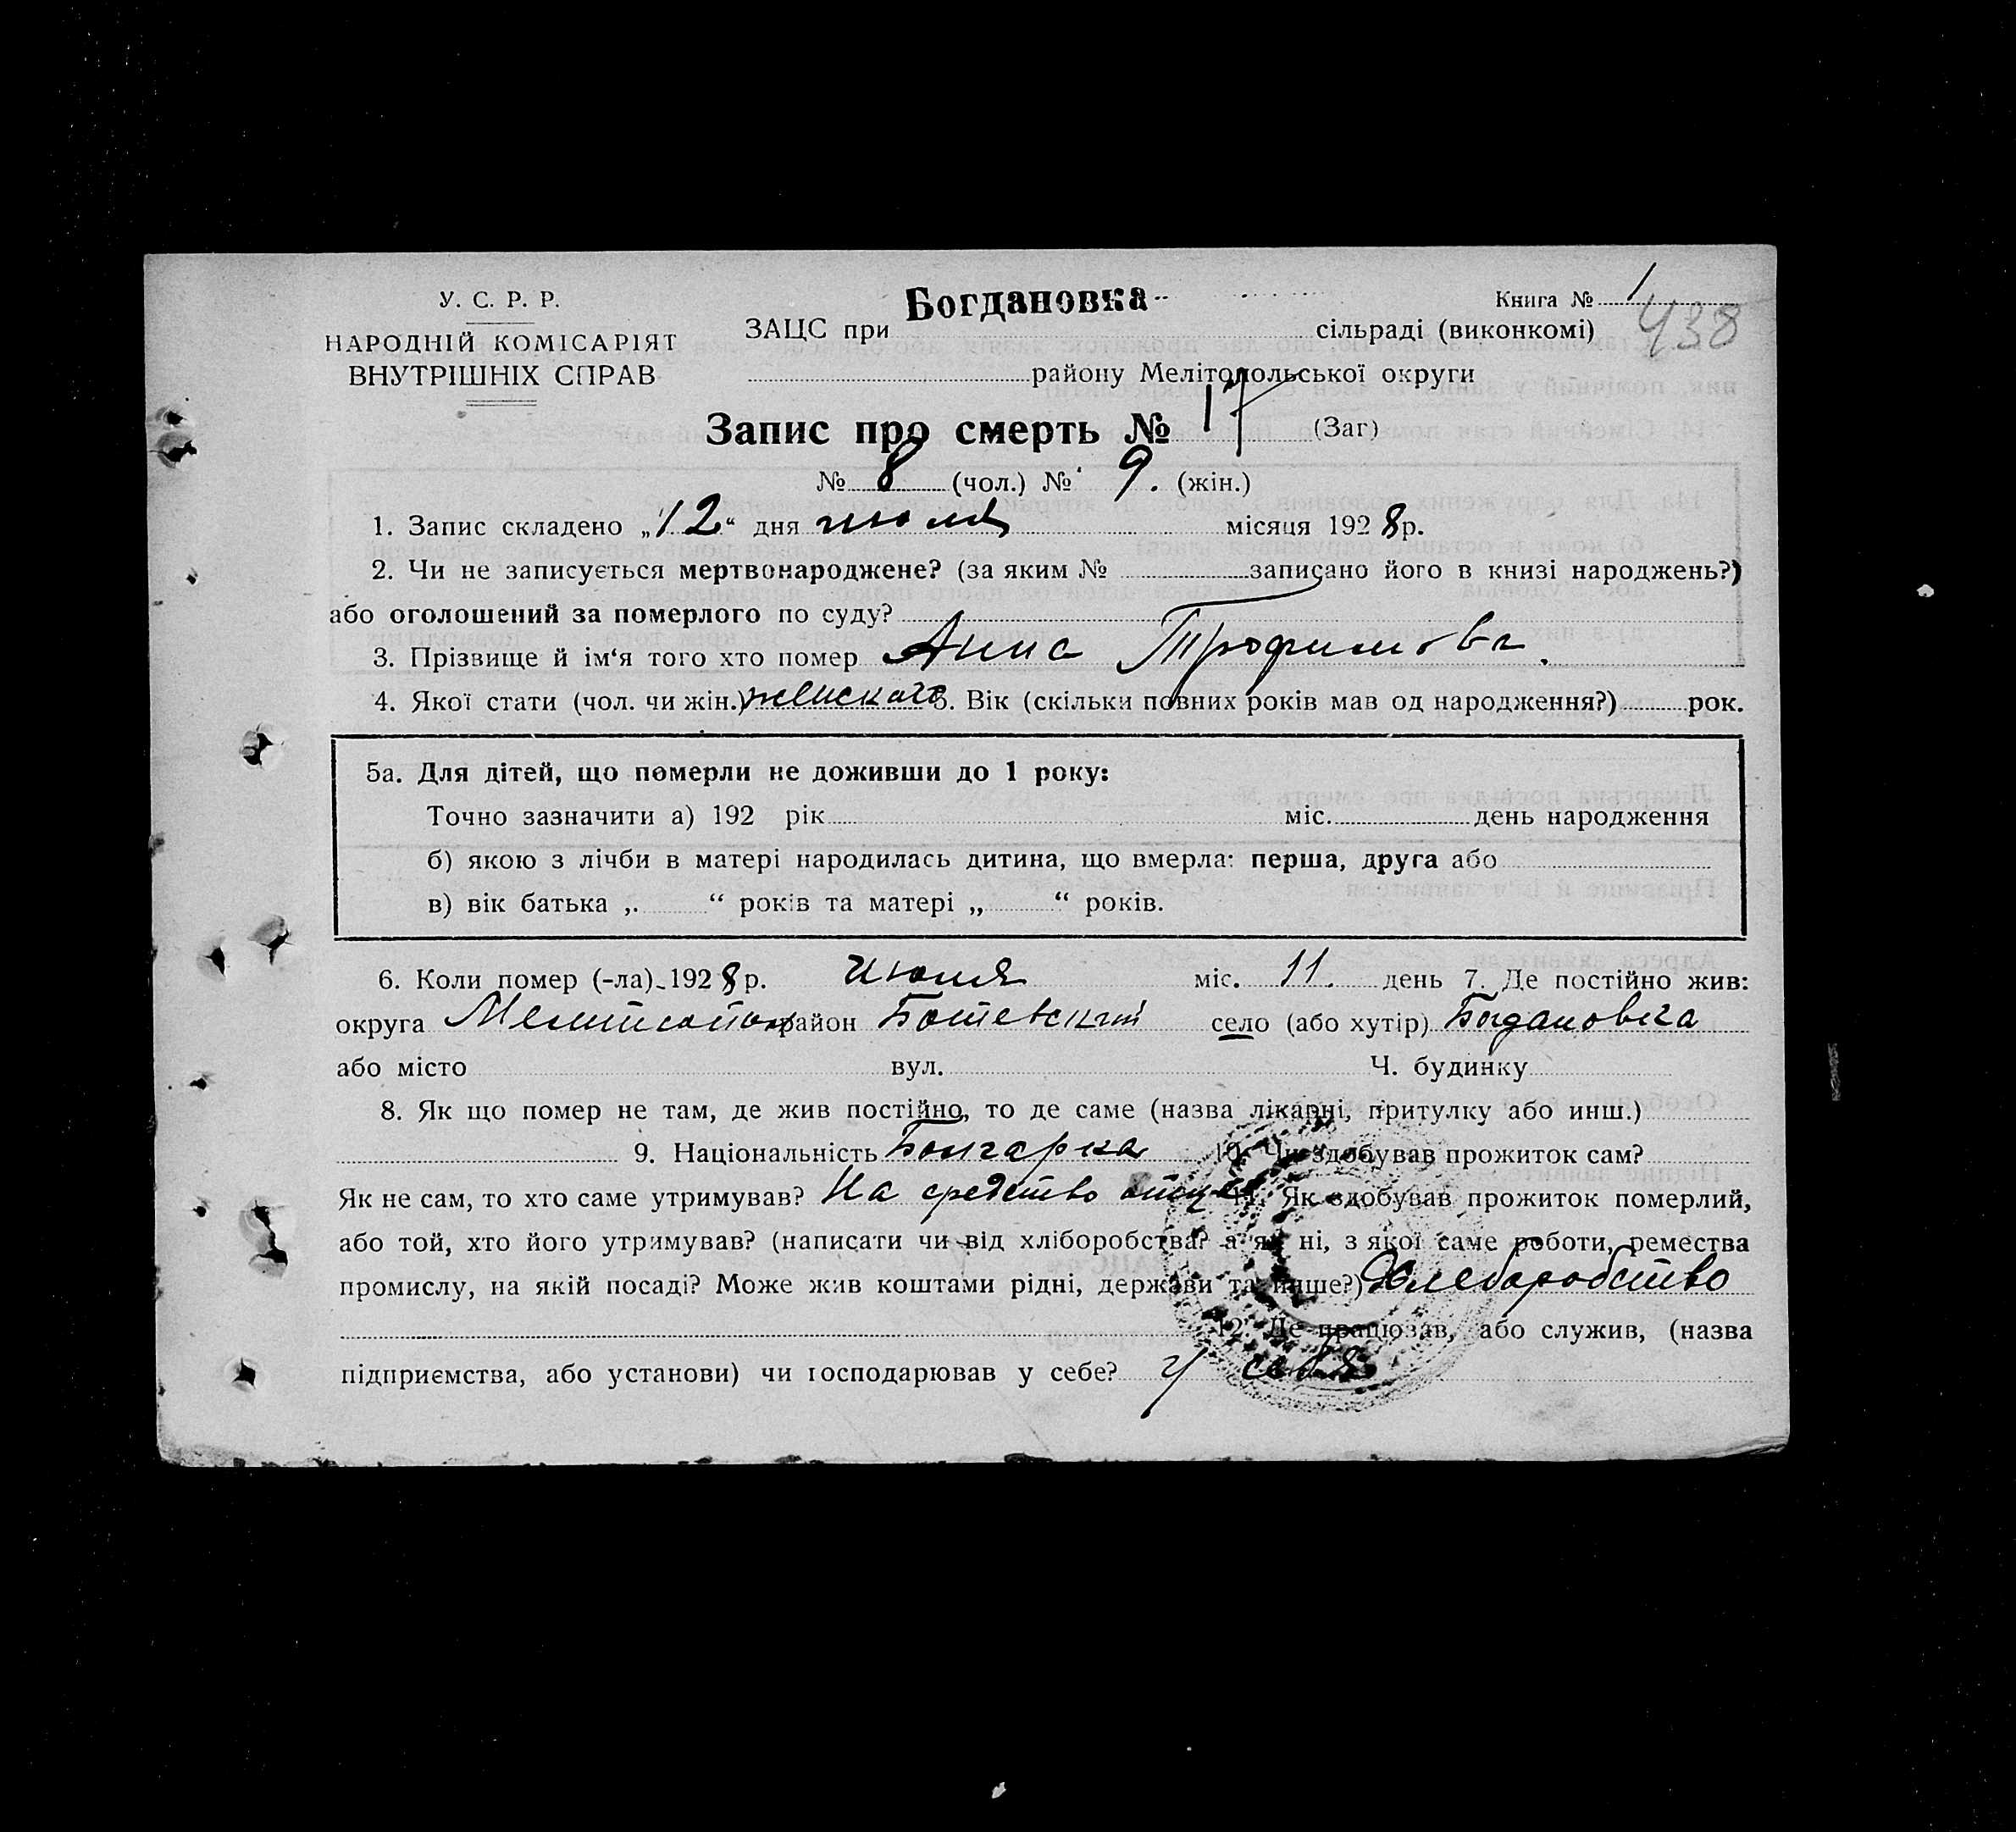 У. С. Р. Р.
НАРОДНІЙ КОМІСАРІЯТ
ВНУТРІШНІХ СПРАВ
Богдановка
Книга № 1
438
ЗАЦС при сільраді (виконкомі)
району Мелітопольської округи
Запис про смерть № 17 (Заг)
№ 8 (чол.) № 9. (жін.)
1. Запис складено „12“ дня июля місяця 1928 р.
2. Чи не записується мертвонароджене? (за яким № записано його в книзі народжень?)
або оголошений за померлого по суду?
3. Прізвище й ім‘я того хто помер Анна Трофимова.
4. Якої статі (чол. чи жін.) женского 5. Вік (скільки повних років мав од народження?) рок.
5а. Для дітей, що померли не доживши до 1 року:
Точно зазначити а) 192 рік міс. день народження
б) якою з лічби в матері народилась дитина, що вмерла: перша, друга або
в) вік батька „ “ років та матері „ “ років.
6. Коли помер (-ла) 1928 р. Июля міс. 11. день 7. Де постійно жив:
округа Мелитопол район Ботевский село (або хутір) Богдановка
або місто вул. Ч. будинку
8. Як що помер не там, де жив постійно, то де саме (назва лікарні, притулку або инш.)
9. Національність Болгарка 10. Чи здобував прожиток сам?
Як не сам, то хто саме утримував? На средство отца 11. Як здобував прожиток померлий,
або той, хто його утримував? (написати чи від хліборобства? а як ні, з якої саме роботи, ремества
промислу, на якій посаді? Може жив коштами рідні, держави та инше?) Хлеборобство
12. Де працював, або служив, (назва
підприємства, або установи) чи господарював у себе? У себя